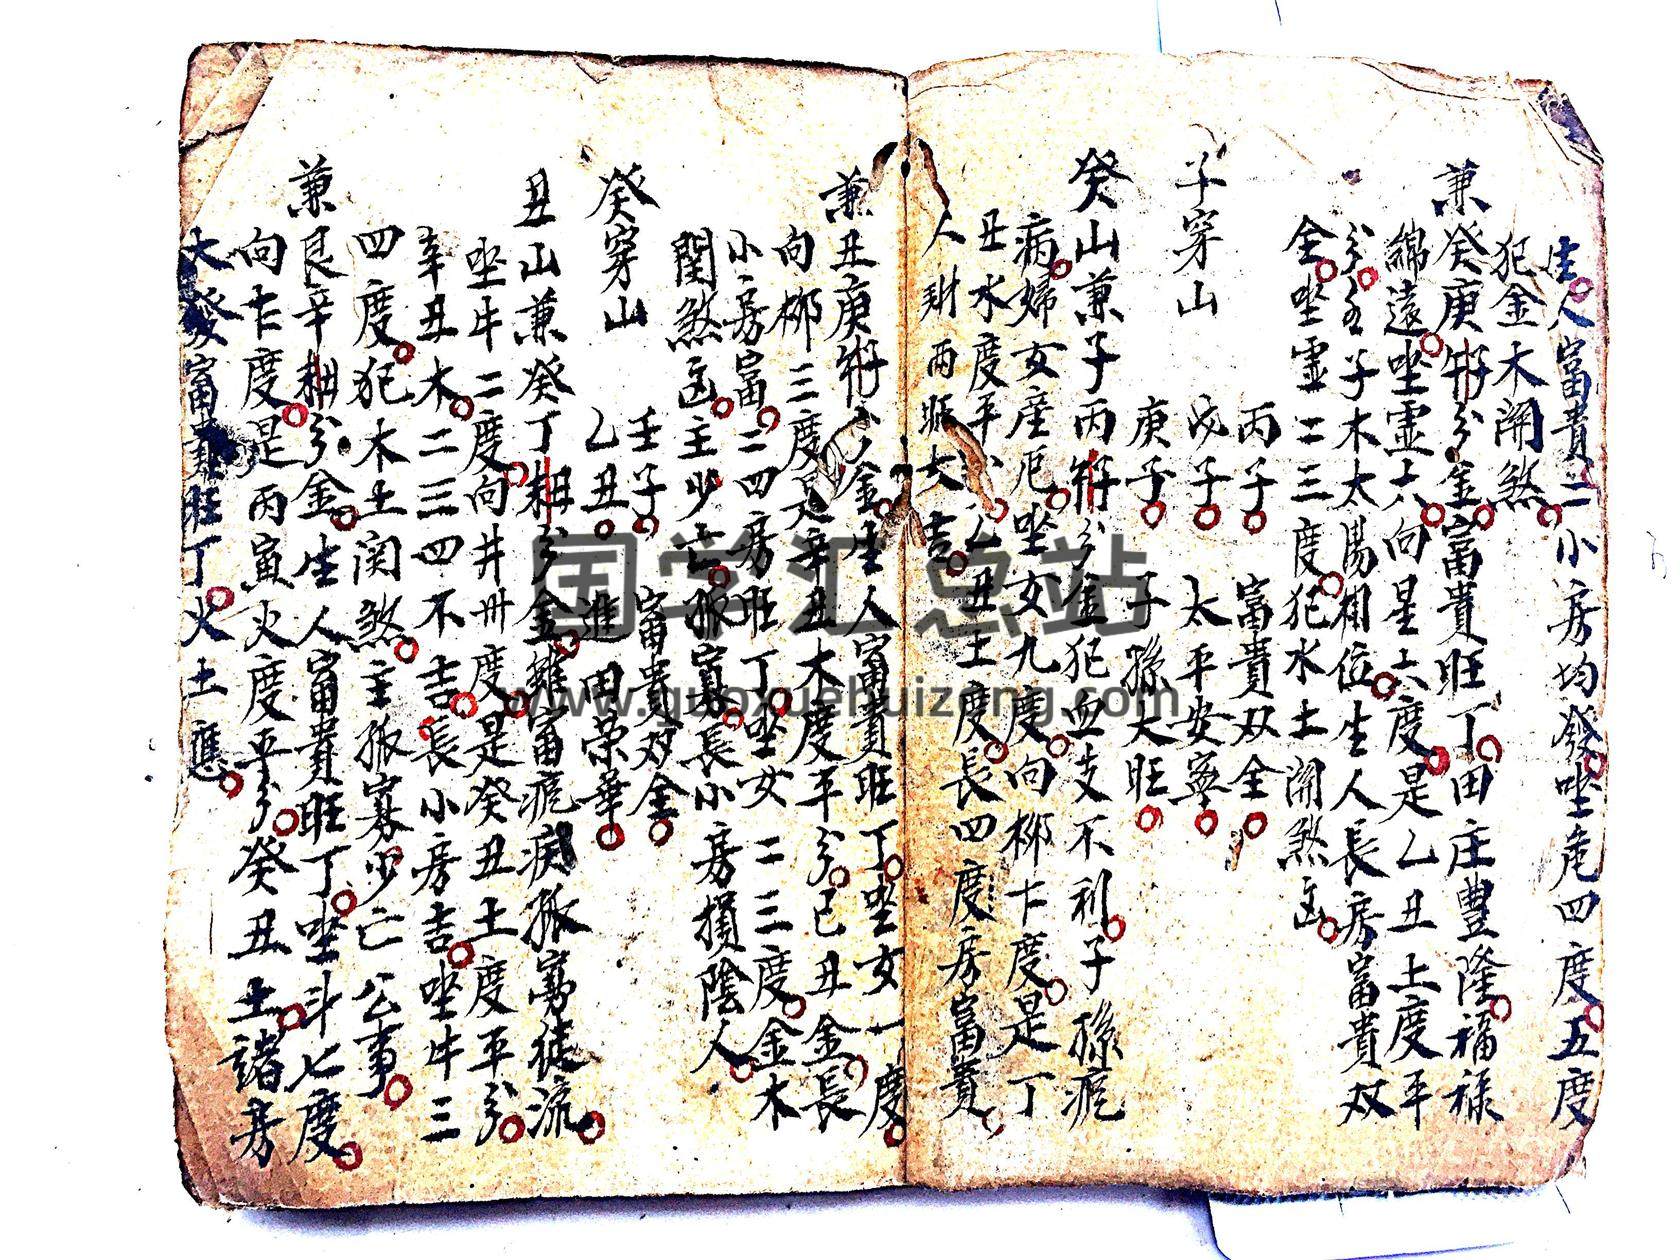 生人富貴二小房均發坐危四度五度
犯金木關煞
兼癸庚分金富貴旺丁田庄豊隆福禄
綿遠坐虛六向星六度是乙丑土度平
分子木太陽相位生人長房富貴双
全坐虛二三度犯水土關煞凶
丙子 富貴双全
戊子 太平安寧
庚子 子孫大旺
子穿山
癸山兼子丙分金犯血支不利子孫
病婦女産厄坐女九度向柳七度是丁
丑水度平乙丑土度長四度房富貴
人財兩旺大吉
兼丑庚金生人富貴旺丁坐女一度
向柳三度是辛丑木度平分己丑金長
小房富二四房旺丁坐女二三度金木
関煞凶主少亡孤寡長小房損陰人
壬子 富貴双全
乙丑 進田荣華
癸穿山
丑山兼癸丁分金雖富疾孤寡徒流
坐牛二度向井卅度是癸丑土度平分
辛丑木二三四不吉長小房吉坐牛三
四度犯木土関煞主孤寡少亡公事
兼艮辛分金生人富貴旺丁坐斗七度
向七度是丙寅火度平分癸丑土諸房
大發富貴旺丁火土應
国学汇总站
www.guoxuehuizong.com